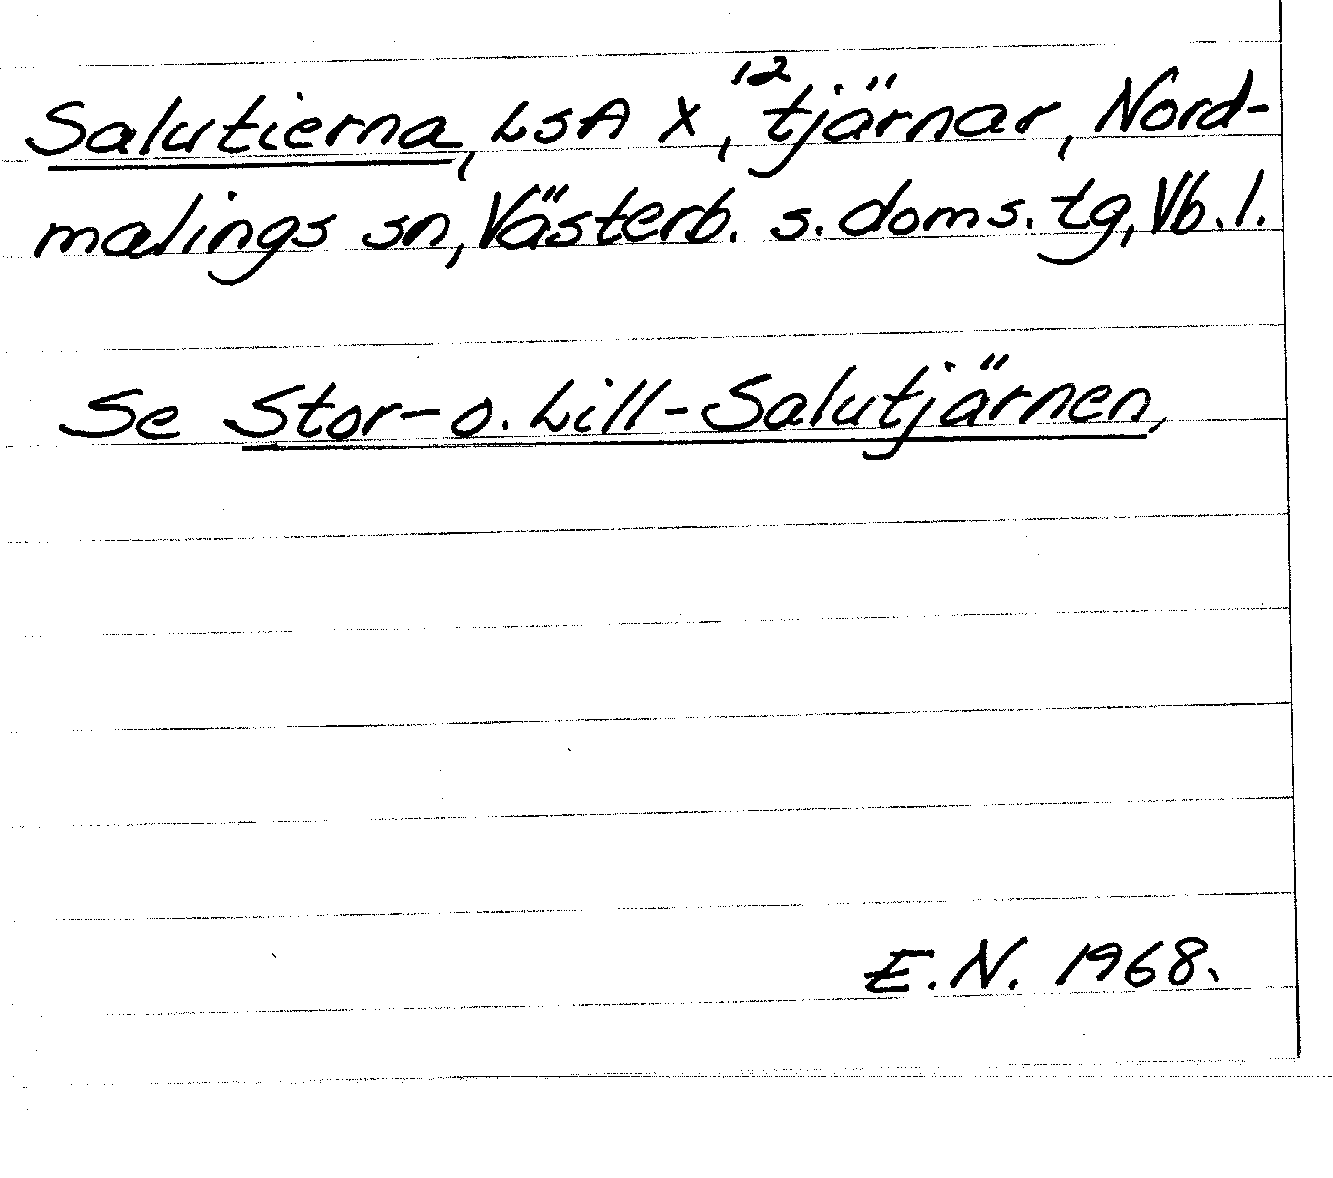 Salutierna, LSA X, 12 tjärnar, Nord-
malings sn, Västerb. s. doms. tg, Vb. l.
Se Stor- o. Lill-Salutjärnen,
E.N. 1968.